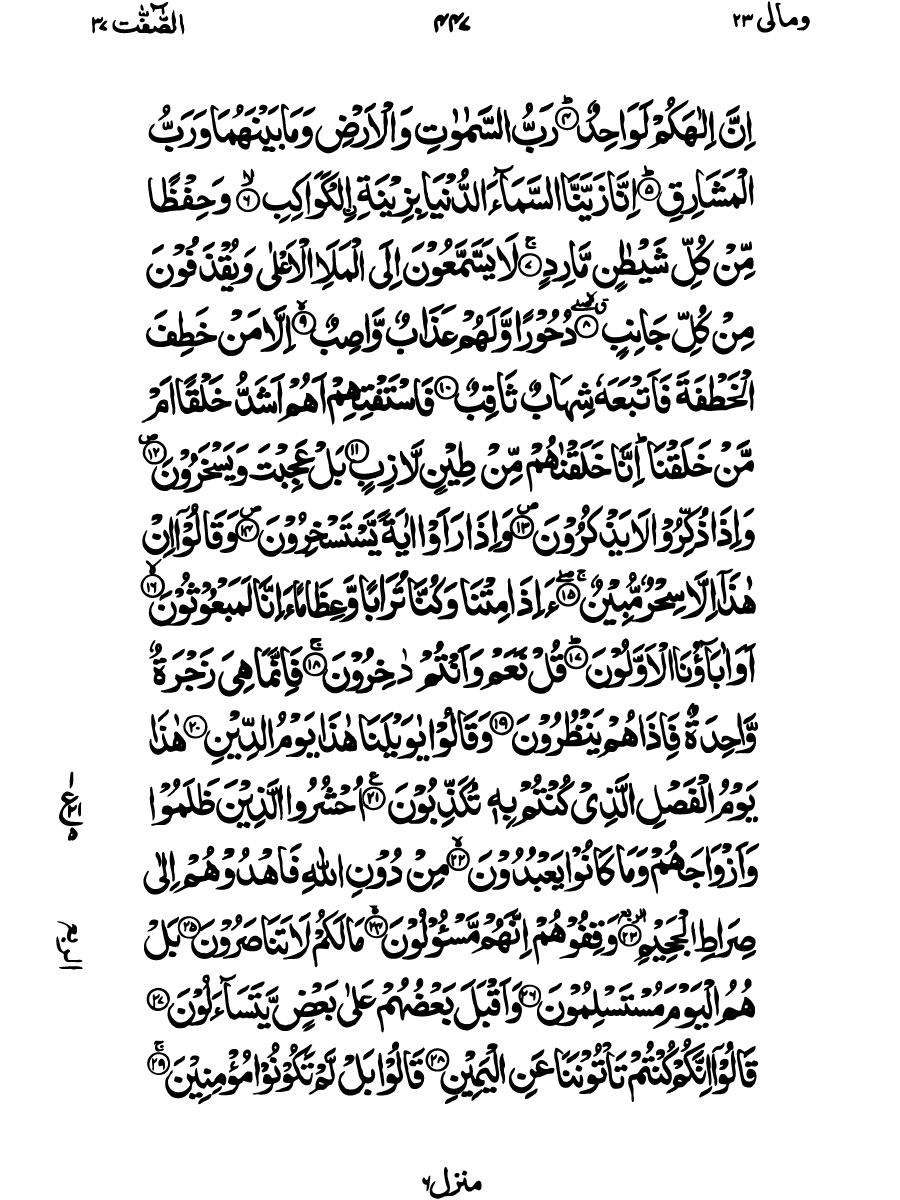 الصّٰٓفّٰت ٣٧ ٤٤٧ ومالی ٢٣
اِنَّ اِلٰهَكُمْ لَوَاحِدٌ ؕ﴿۴﴾ رَبُّ السَّمٰوٰتِ وَالْاَرْضِ وَمَا بَيْنَهُمَا وَرَبُّ
الْمَشَارِقِ ؕ﴿۵﴾ اِنَّا زَيَّنَّا السَّمَآءَ الدُّنْيَا بِزِيْنَةِ ۨالْكَوَاكِبِ ۙ﴿۶﴾ وَحِفْظًا
مِّنْ كُلِّ شَيْطٰنٍ مَّارِدٍ ۚ﴿۷﴾ لَا يَسَّمَّعُوْنَ اِلَى الْمَلَاِ الْاَعْلٰى وَيُقْذَفُوْنَ
مِنْ كُلِّ جَانِبٍ ﴿۸﴾ دُحُوْرًا وَّلَهُمْ عَذَابٌ وَّاصِبٌ ۙ﴿۹﴾ اِلَّا مَنْ خَطِفَ
الْخَطْفَةَ فَاَتْبَعَهٗ شِهَابٌ ثَاقِبٌ ﴿۱۰﴾ فَاسْتَفْتِهِمْ اَهُمْ اَشَدُّ خَلْقًا اَمْ
مَّنْ خَلَقْنَا ؕ اِنَّا خَلَقْنٰهُمْ مِّنْ طِيْنٍ لَّازِبٍ ﴿۱۱﴾ بَلْ عَجِبْتَ وَيَسْخَرُوْنَ ۪﴿۱۲﴾
وَاِذَا ذُكِّرُوْا لَا يَذْكُرُوْنَ ۪﴿۱۳﴾ وَاِذَا رَاَوْا اٰيَةً يَّسْتَسْخِرُوْنَ ۪﴿۱۴﴾ وَقَالُوْٓا اِنْ
هٰذَآ اِلَّا سِحْرٌ مُّبِيْنٌ ۚۖ﴿۱۵﴾ ءَاِذَا مِتْنَا وَكُنَّا تُرَابًا وَّعِظَامًا ءَاِنَّا لَمَبْعُوْثُوْنَ ۙ﴿۱۶﴾
اَوَاٰبَآؤُنَا الْاَوَّلُوْنَ ؕ﴿۱۷﴾ قُلْ نَعَمْ وَاَنْتُمْ دٰخِرُوْنَ ۚ﴿۱۸﴾ فَاِنَّمَا هِيَ زَجْرَةٌ
وَّاحِدَةٌ فَاِذَا هُمْ يَنْظُرُوْنَ ﴿۱۹﴾ وَقَالُوْا يٰوَيْلَنَا هٰذَا يَوْمُ الدِّيْنِ ﴿۲۰﴾ هٰذَا
يَوْمُ الْفَصْلِ الَّذِيْ كُنْتُمْ بِهٖ تُكَذِّبُوْنَ ﴿۲۱﴾ع اُحْشُرُوا الَّذِيْنَ ظَلَمُوْا
وَاَزْوَاجَهُمْ وَمَا كَانُوْا يَعْبُدُوْنَ ۙ﴿۲۲﴾ مِنْ دُوْنِ اللّٰهِ فَاهْدُوْهُمْ اِلٰى
صِرَاطِ الْجَحِيْمِ ﴿۲۳﴾ وَقِفُوْهُمْ اِنَّهُمْ مَّسْـُٔوْلُوْنَ ۙ﴿۲۴﴾ مَا لَكُمْ لَا تَنَاصَرُوْنَ ﴿۲۵﴾ بَلْ
هُمُ الْيَوْمَ مُسْتَسْلِمُوْنَ ﴿۲۶﴾ وَاَقْبَلَ بَعْضُهُمْ عَلٰى بَعْضٍ يَّتَسَآءَلُوْنَ ﴿۲۷﴾
قَالُوْٓا اِنَّكُمْ كُنْتُمْ تَاْتُوْنَنَا عَنِ الْيَمِيْنِ ﴿۲۸﴾ قَالُوْا بَلْ لَّمْ تَكُوْنُوْا مُؤْمِنِيْنَ ۚ﴿۲۹﴾
١
ع ٢١
٥
الربع
منزل ٦